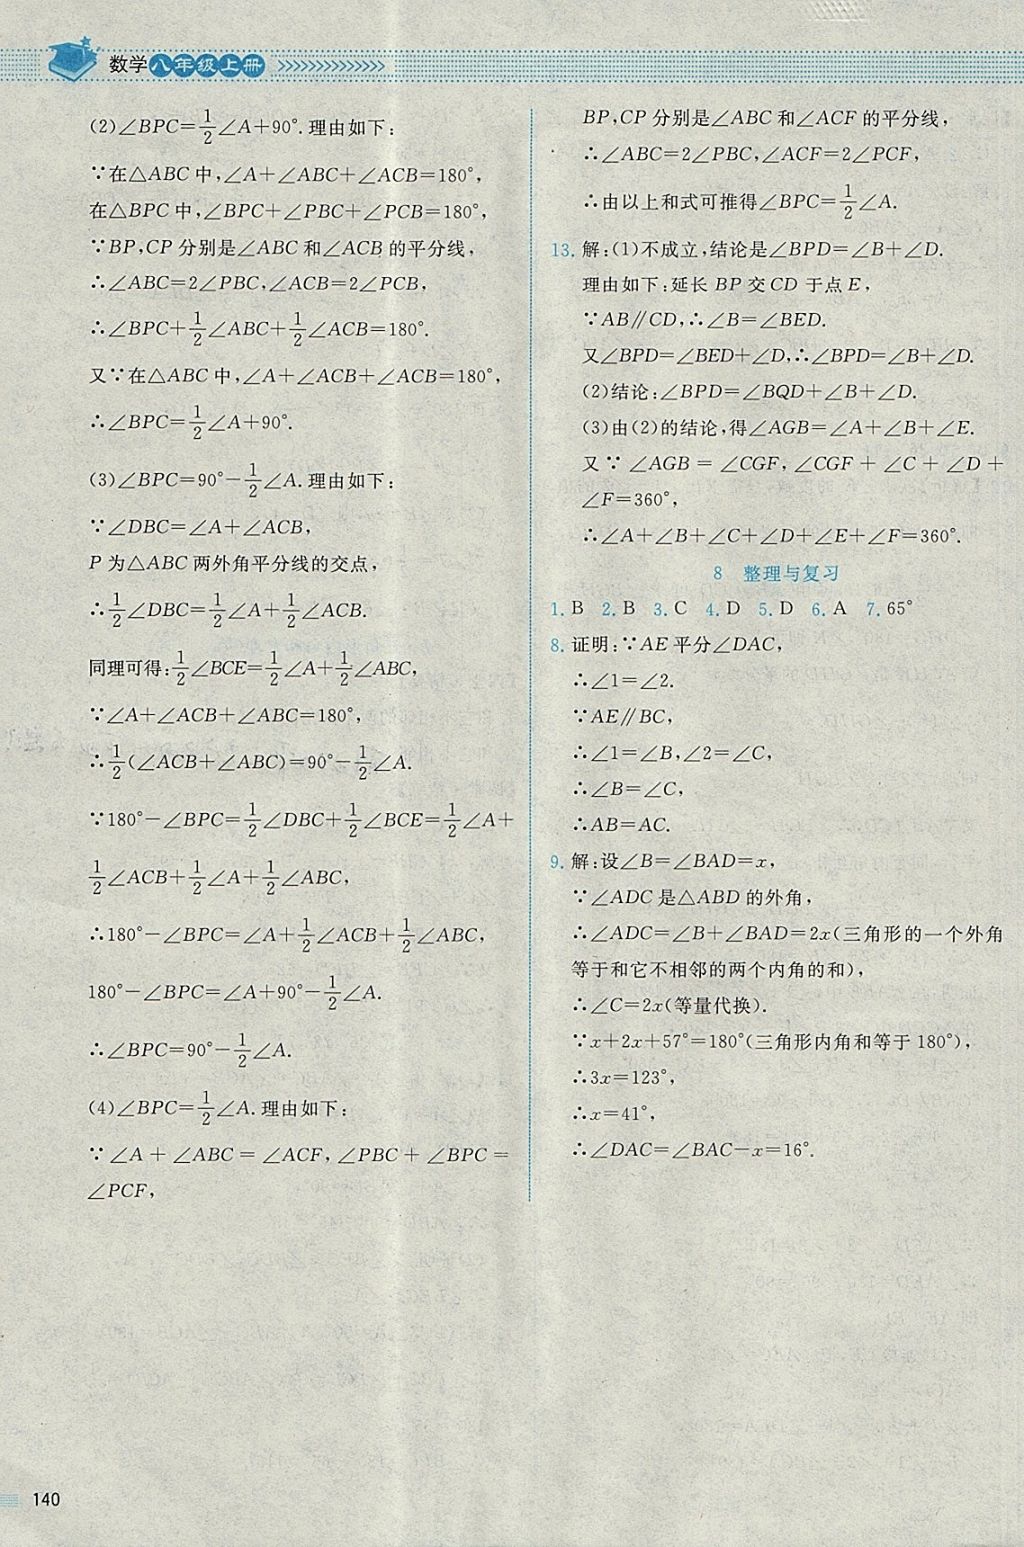 数学八年级上册
(2)∠BPC=1/2∠A+90°.理由如下:
∵在△ABC中,∠A+∠ABC+∠ACB=180°,
在△BPC中,∠BPC+∠PBC+∠PCB=180°,
∵BP,CP分别是∠ABC和∠ACB的平分线,
∴∠ABC=2∠PBC,∠ACB=2∠PCB,
∴∠BPC+1/2∠ABC+1/2∠ACB=180°.
又∵在△ABC中,∠A+∠ACB+∠ACB=180°,
∴∠BPC=1/2∠A+90°.
(3)∠BPC=90°-1/2∠A.理由如下:
∵∠DBC=∠A+∠ACB,
P为△ABC两外角平分线的交点,
∴1/2∠DBC=1/2∠A+1/2∠ACB.
同理可得:1/2∠BCE=1/2∠A+1/2∠ABC,
∵∠A+∠ACB+∠ABC=180°,
∴1/2(∠ACB+∠ABC)=90°-1/2∠A.
∵180°-∠BPC=1/2∠DBC+1/2∠BCE=1/2∠A+
1/2∠ACB+1/2∠A+1/2∠ABC,
∴180°-∠BPC=∠A+1/2∠ACB+1/2∠ABC,
180°-∠BPC=∠A+90°-1/2∠A.
∴∠BPC=90°-1/2∠A.
(4)∠BPC=1/2∠A.理由如下:
∵∠A+∠ABC=∠ACF,∠PBC+∠BPC=
∠PCF,
BP,CP分别是∠ABC和∠ACF的平分线,
∴∠ABC=2∠PBC,∠ACF=2∠PCF,
∴由以上和式可推得∠BPC=1/2∠A.
13.解:(1)不成立,结论是∠BPD=∠B+∠D.
理由如下:延长BP交CD于点E,
∵AB∥CD,∴∠B=∠BED.
又∠BPD=∠BED+∠D,∴∠BPD=∠B+∠D.
(2)结论:∠BPD=∠BQD+∠B+∠D.
(3)由(2)的结论,得∠AGB=∠A+∠B+∠E.
又∵∠AGB=∠CGF,∠CGF+∠C+∠D+
∠F=360°,
∴∠A+∠B+∠C+∠D+∠E+∠F=360°.
8 整理与复习
1.B 2.B 3.C 4.D 5.D 6.A 7.65°
8.证明:∵AE平分∠DAC,
∴∠1=∠2.
∵AE∥BC,
∴∠1=∠B,∠2=∠C,
∴∠B=∠C,
∴AB=AC.
9.解:设∠B=∠BAD=x,
∵∠ADC是△ABD的外角,
∴∠ADC=∠B+∠BAD=2x(三角形的一个外角
等于和它不相邻的两个内角的和),
∴∠C=2x(等量代换).
∵x+2x+57°=180°(三角形内角和等于180°),
∴3x=123°,
∴x=41°,
∴∠DAC=∠BAC-x=16°.
140